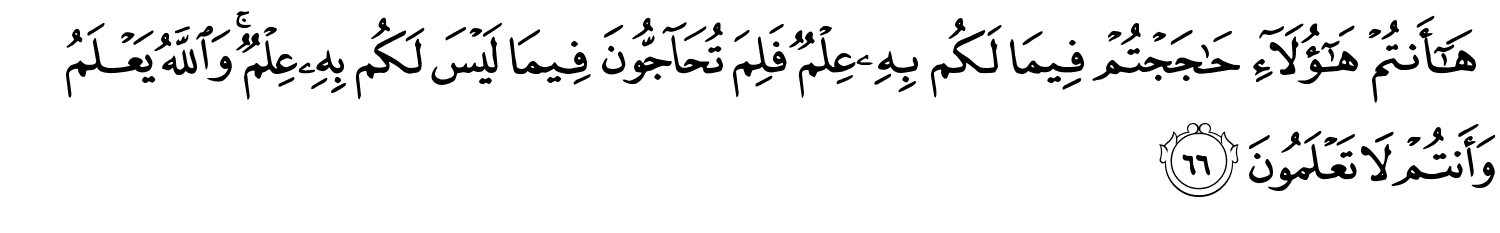 هَٰٓأَنتُمۡ هَٰٓؤُلَآءِ حَٰجَجۡتُمۡ فِيمَا لَكُم بِهِۦ عِلۡمٞ فَلِمَ تُحَآجُّونَ فِيمَا لَيۡسَ لَكُم بِهِۦ عِلۡمٞۚ وَٱللَّهُ يَعۡلَمُ
وَأَنتُمۡ لَا تَعۡلَمُونَ ٦٦